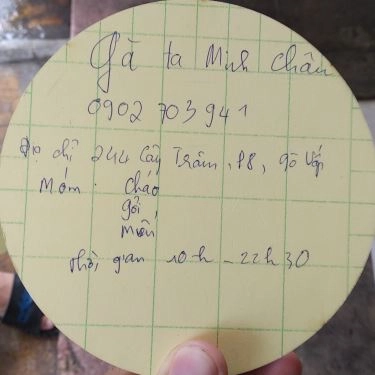 Gà ta Minh Châu
0902 703 941
Địa chỉ 244 Cây Trâm, P8, Gò Vấp
Món: Cháo
gỏi
miến
Thời gian 10h - 22h30